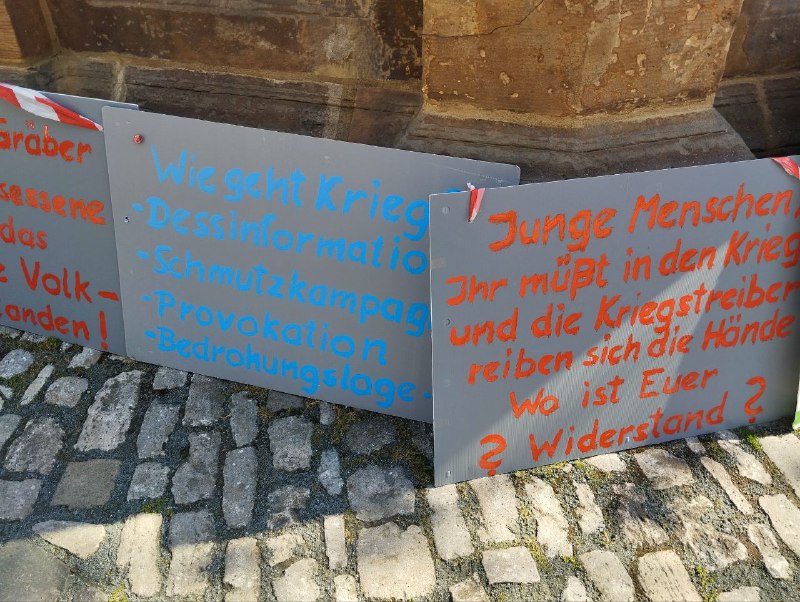 Gräber
sessene
das
Volk-
landen!
Wie geht Krieg
-Dessinformatio
-Schmutzkampag
-Provokation
-Bedrohungslage-
Junge Menschen,
Ihr müßt in den Krieg
und die Kriegstreiber
reiben sich die Hände
Wo ist Euer
? Widerstand?